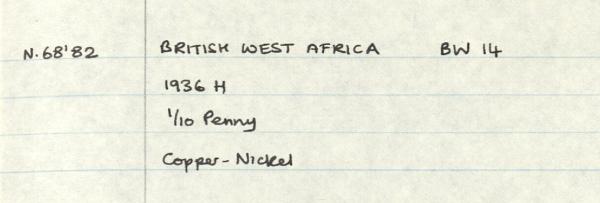 N.68'82 BRITISH WEST AFRICA BW 14
1936 H
1/10 Penny
Copper-Nickel